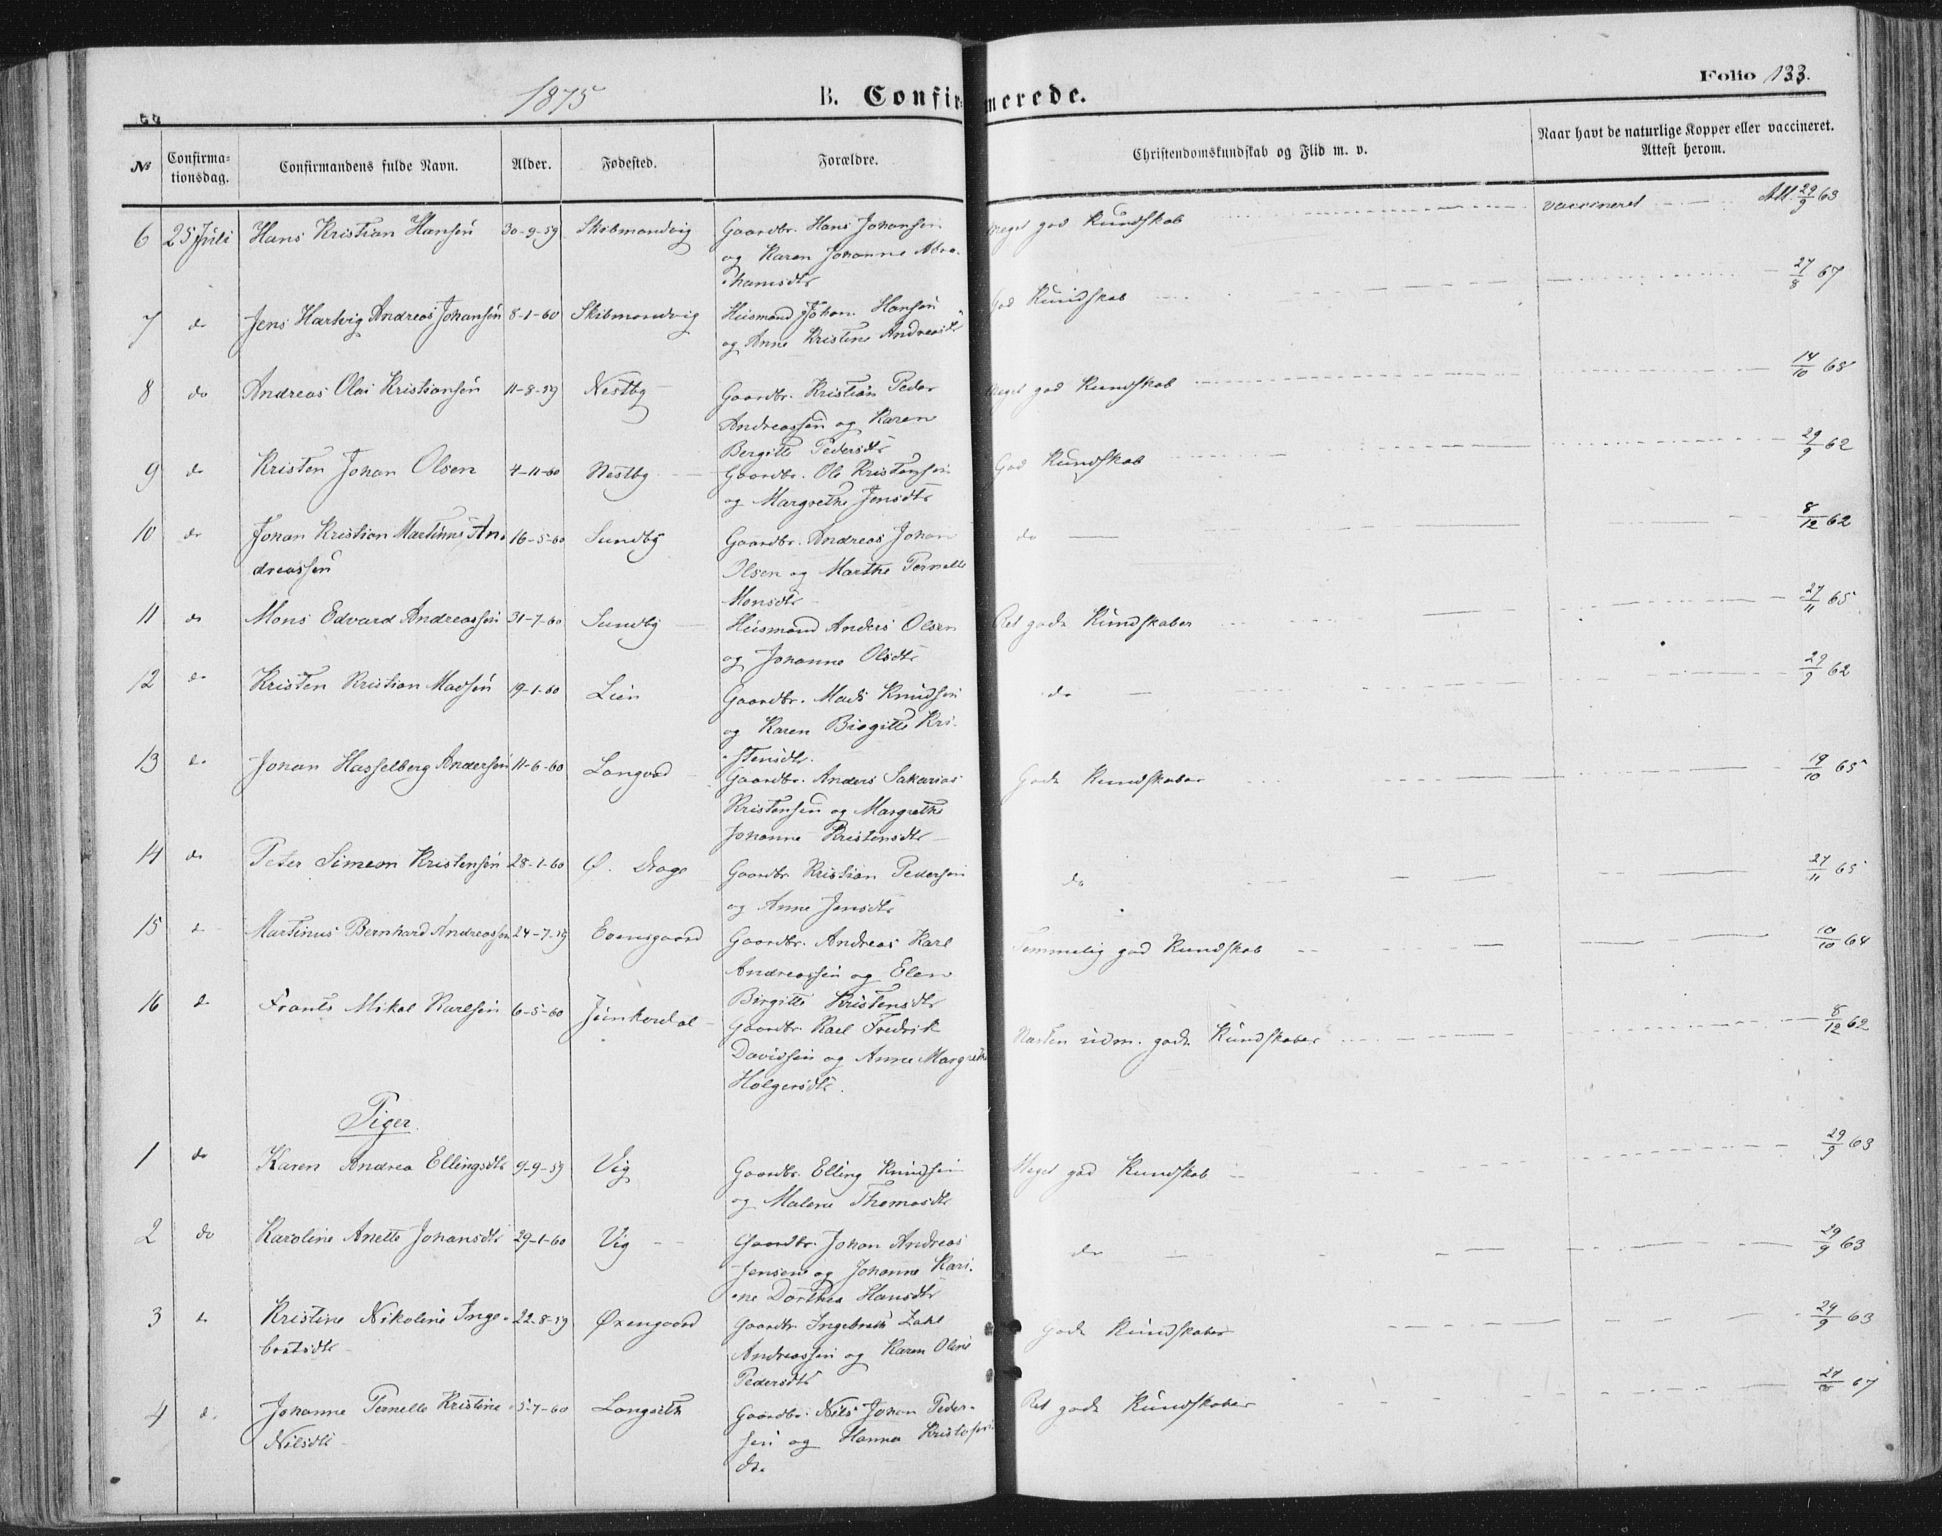 1875
B. Confirmerede.
Folio 133.
№ Confirmationsdag. Confirmandens fulde Navn. Alder. Fødested. Forældre. Christendomskundskab og Flid m. v. Naar havt de naturlige Kopper eller vaccineret. Attest herom.
6 25 Juli Hans Kristian Hansen 30-9-59 Skibmandvig Gaardbr. Hans Johansen Meget god Kundskab vaccineret Att. 29/9 63
og Karen Johanne Abra-
hamsdtr
7 do Jens Hartvig Andreas Johansen 8-1-60 Skibmandvig Husmand Johan Hansen God Kundskab 27/8 67
og Anne Kristine Andreasdtr
8 do Andreas Olai Kristiansen 11-8-59 Nestby Gaardbr. Kristian Peder Meget god Kundskab 14/10 68
Andreassen og Karen
Bergitte Pedersdtr
9 do Kristen Johan Olsen 4-11-60 Nestby Gaardbr. Ole Kristensen God Kundskab 29/9 62
og Margrethe Jensdtr
10 do Johan Kristian Martinus An- 16-5-60 Sundby Gaardbr. Andreas Johan do 8/12 62
dreassen Olsen og Marthe Pernelle
Monsdtr
11 do Mons Edvard Andreassen 31-7-60 Sundby Husmand Anders Olsen Ret gode Kundskaber 27/11 65
og Johanne Olsdtr
12 do Kristen Kristian Madsen 19-1-60 Lien Gaardbr. Mads Knudsen do 29/9 62
og Karen Birgitte Kri-
stensdtr.
13 do Johan Hasselberg Andersen 11-6-60 Langvad Gaardbr. Anders Sakarias Gode Kundskaber 19/10 65
Kristensen og Margrethe
Johanne Kristensdtr
14 do Peter Simeon Kristensen 28-1-60 Ø. Drage Gaardbr Kristian Pedersen do 27/11 65
og Anne Jensdtr
15 do Martinus Bernhard Andreassen 24-7-59 Evensgaard Gaardbr. Andreas Karl Temmelig god Kundskab 10/10 64
Andreassen og Elen
Birgitte Kristensdtr
16 do Frants Mikal Karlsen 6-5-60 Junkerdal Gaardbr. Karl Fredrik Næsten udm. gode Kundskaber 8/12 62
Davidsen og Anne Margrethe
Holgersdtr.
Piger
1 do Karen Andrea Ellingsdtr 9-9-59 Vig Gaardbr. Elling Knudsen Meget god Kundskab 29/9 63
og Malene Thomasdtr
2 do Karoline Anette Johansdtr 29-1-60 Vig Gaardbr. Johan Andreas do 29/9 63
Jensen og Johanne Kari-
ne Dorthea Hansdtr
3 do Kristine Nikoline Inge- 22-8-59 Øxengaard Gaardbr. Ingebrikt Zahl Gode Kundskaber 29/9 63
bretsdtr Andreassen og Karen Oline
Pedersdtr
4 do Johanne Pernelle Kristine 5-7-60 Langseth Gaardbr. Nils Johan Peder- Ret gode Kundskaber 27/8 67
Nilsdtr sen og Hanna Kristofers-
dr.